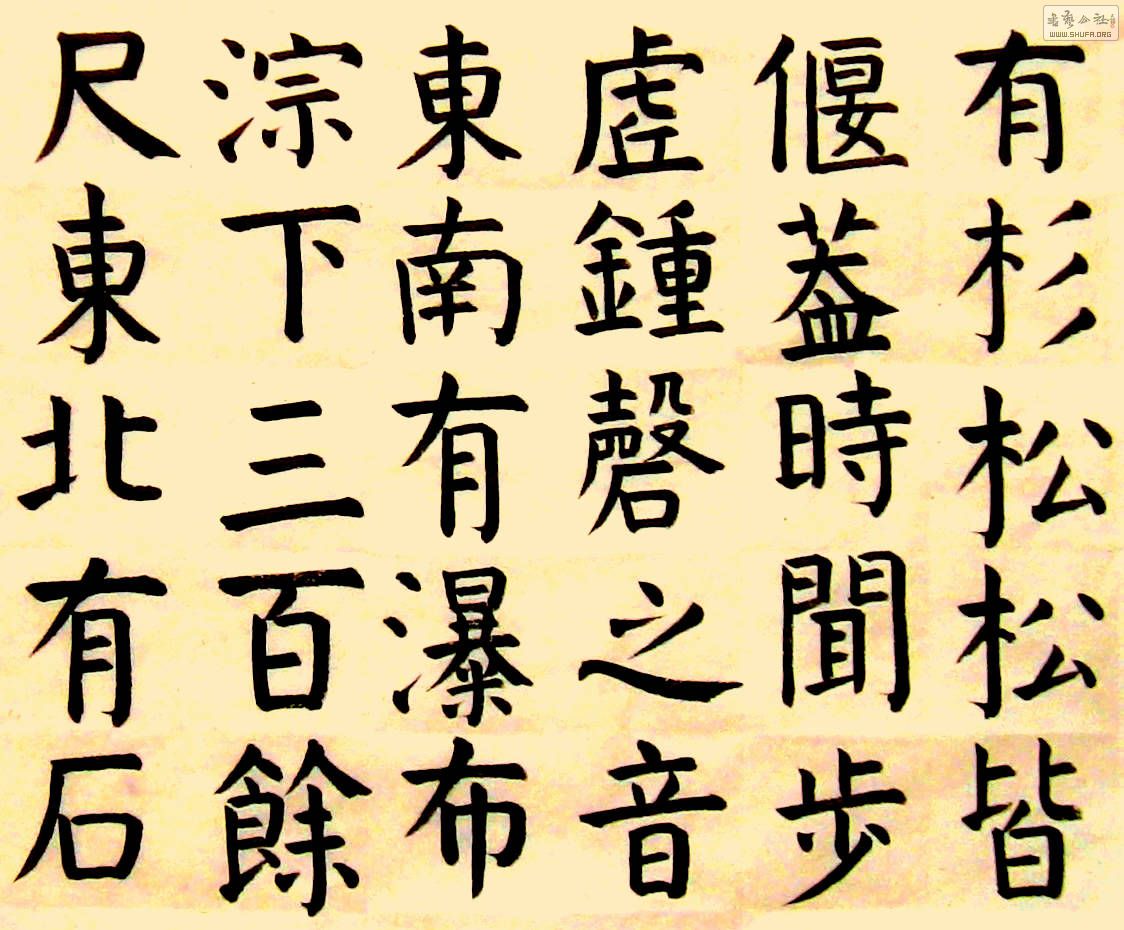 有杉松松皆
偃蓋時聞步
虛鍾磬之音
東南有瀑布
淙下三百餘
尺東北有石
WWW.SHUFA.ORG